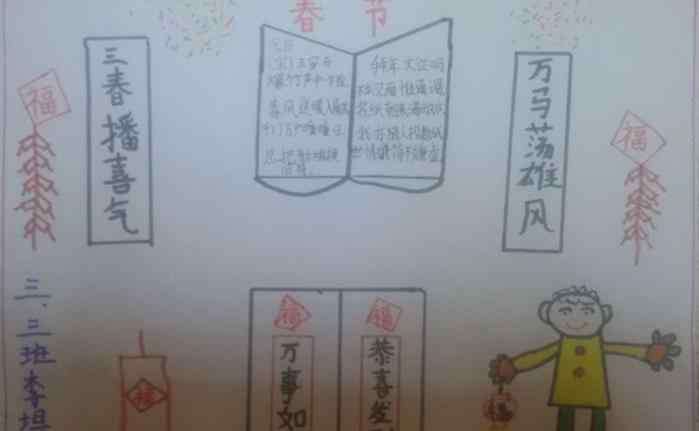 春节
三春播喜气
万马荡雄风
福
福
元日
(宋)王安石
爆竹声中一岁除
春风送暖入屠苏
千门万户曈曈日
总把新桃换
旧符。
拜年 文征明
福
福
万事如
恭喜发
福
福
三、三班李坦